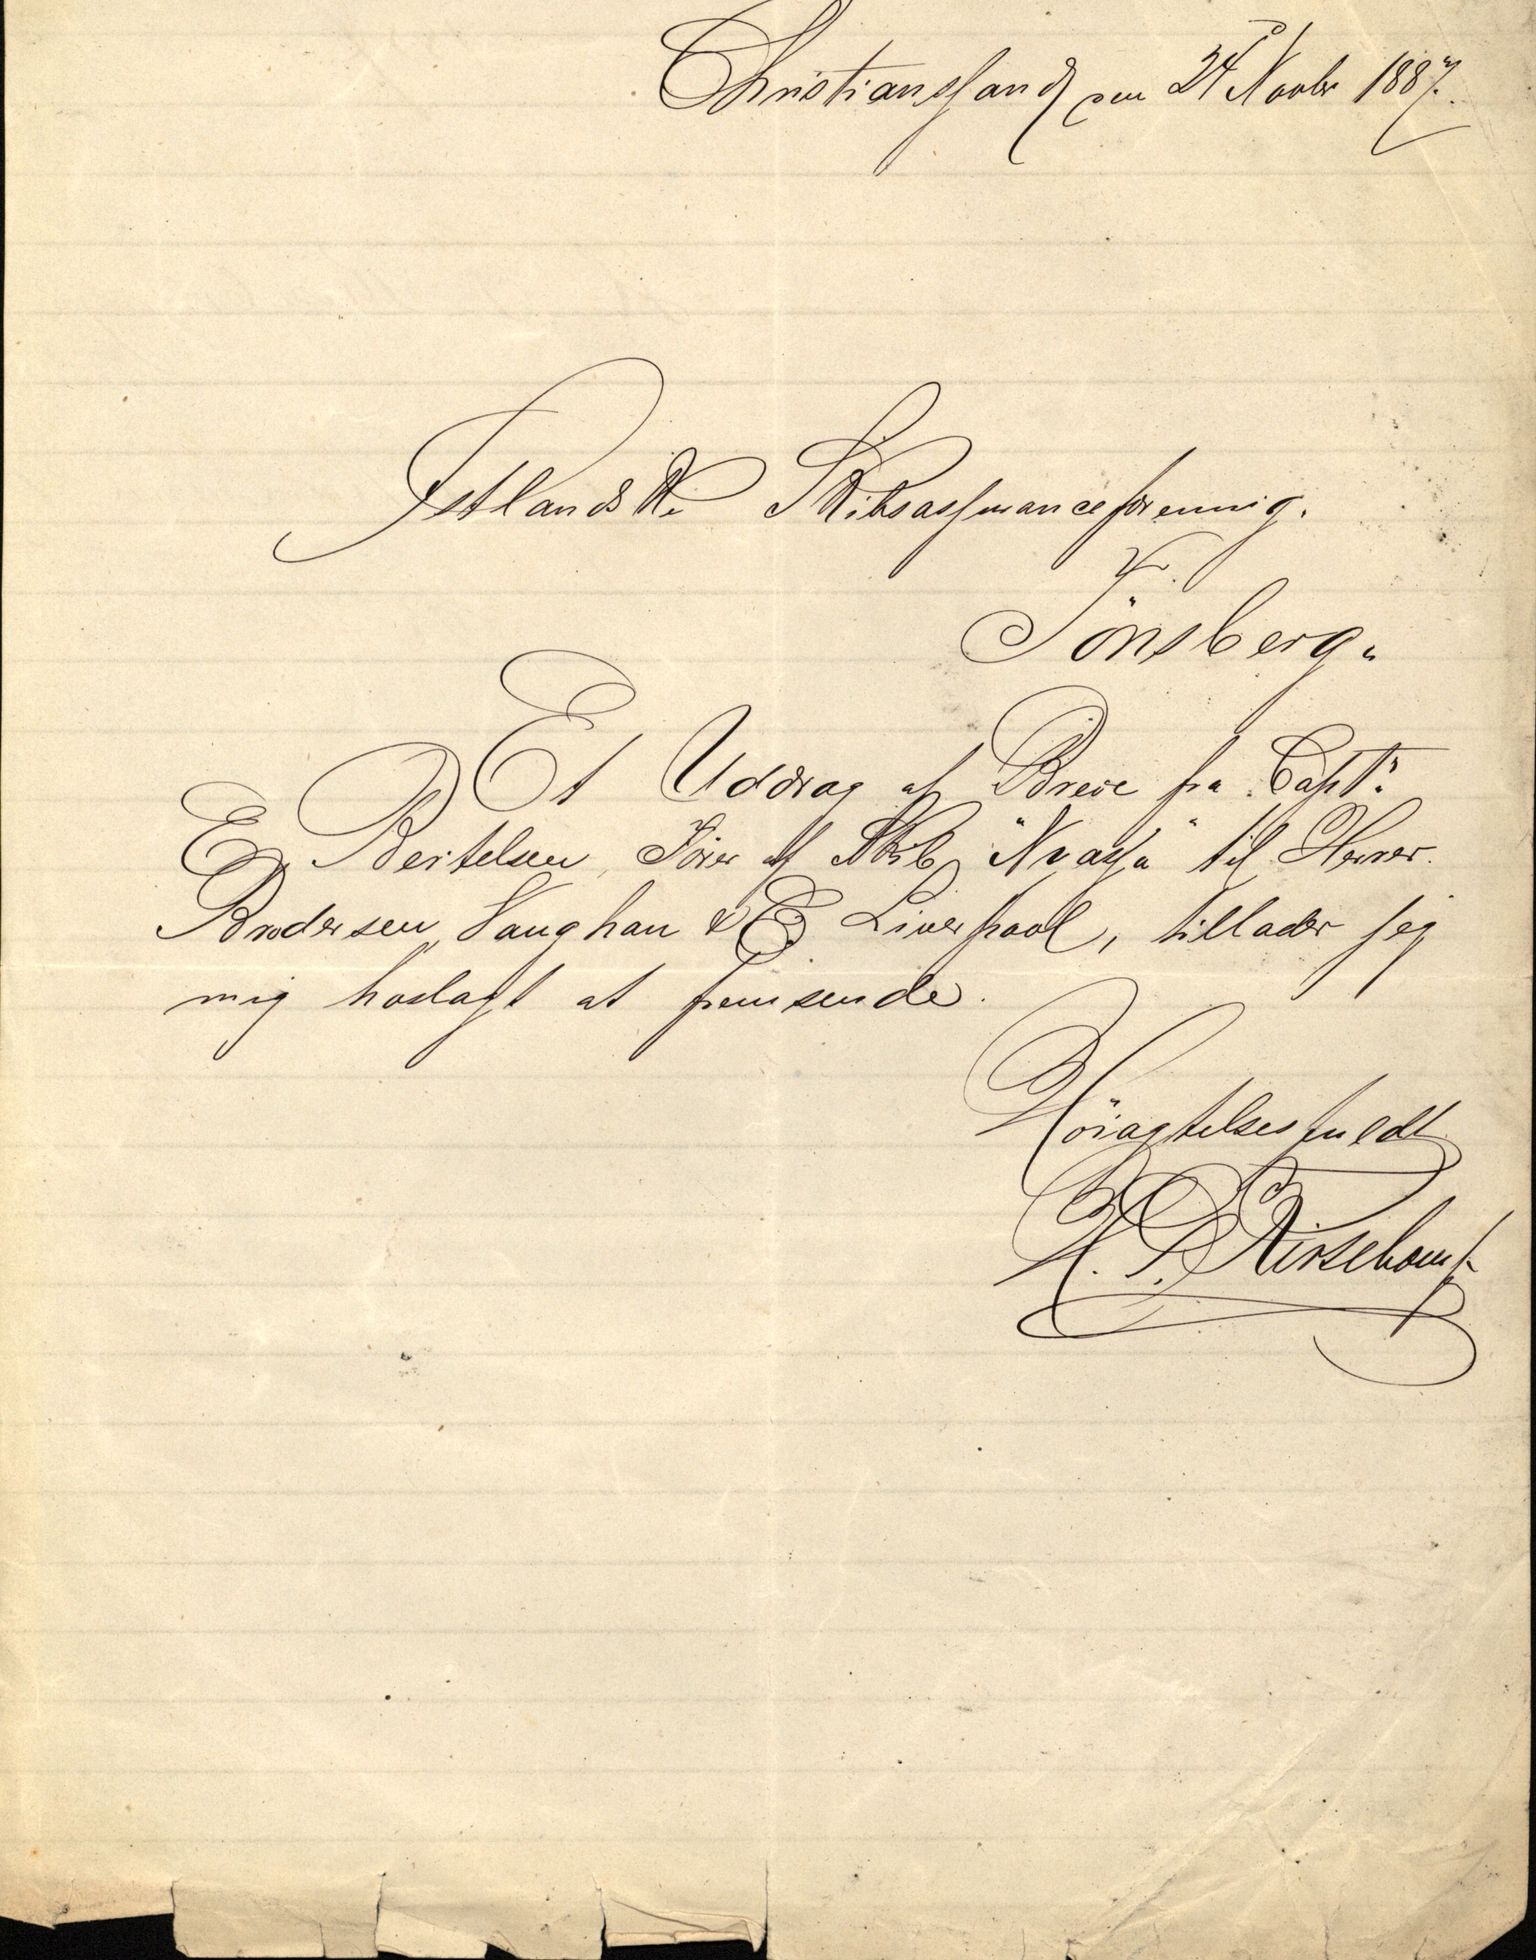 Christianssand den 24 Novbr 1887.
Jstlandske Skibsassuranceforening.
Tönsberg.
Et Uddrag af Breve fra Captn
E Bertelsen, Förer af Skib "Nyassa" til Herrer
Brodersen Vaughan & Co Liverpool, tillader jeg
mig hoslagt at fremsende.
Höiagtelsesfuldt